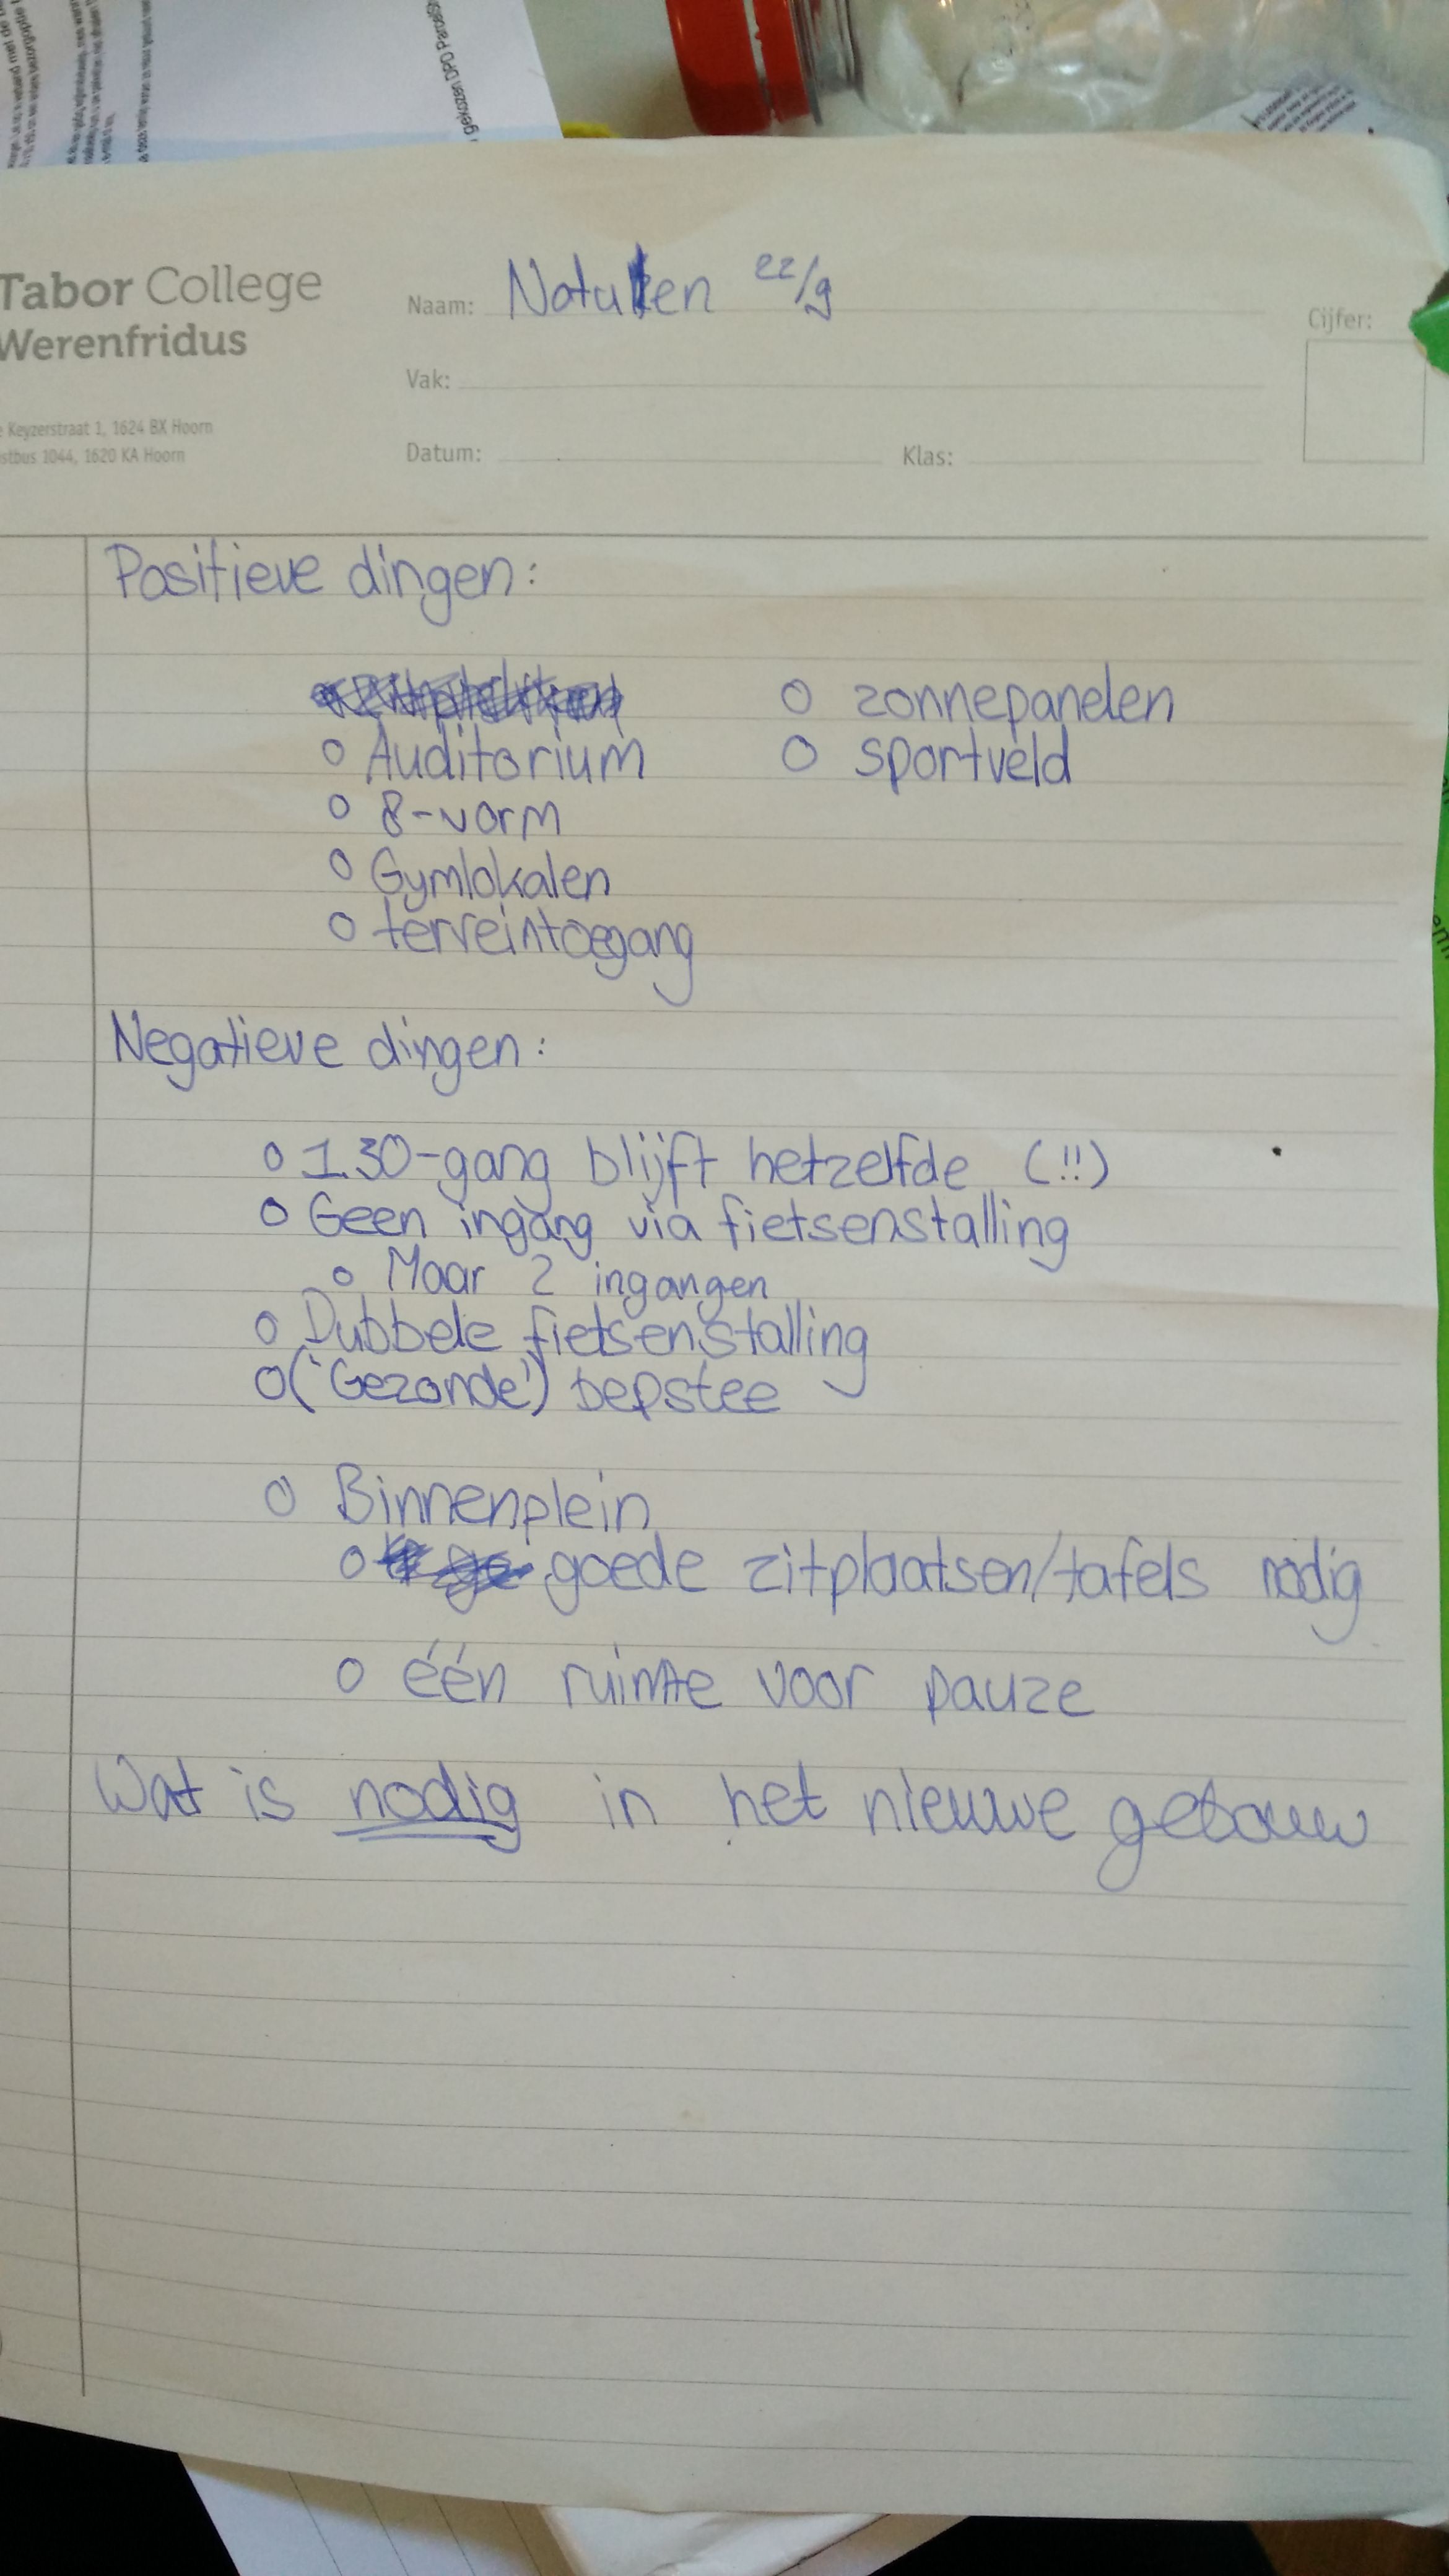 gekozen DPD
Tabor College
Werenfridus
Keyzerstraat 1, 1624 BX Hoorn
stbus 1044, 1620 KA Hoorn
Naam: Notulen 22/9
Cijfer:
Vak:
Datum:
Klas:
Positieve dingen:
o Auditorium
o 8-vorm
o Gymlokalen
o terreintoegang
o zonnepanelen
o sportveld
Negatieve dingen:
o 1.30-gang blijft hetzelfde (!!)
o Geen ingang via fietsenstalling
o Maar 2 ingangen
o Dubbele fietsenstalling
o ('Gezonde')
o Binnenplein
o goede zitplaatsen/tafels nodig
o één ruimte voor pauze
Wat is nodig in het nieuwe gebouw